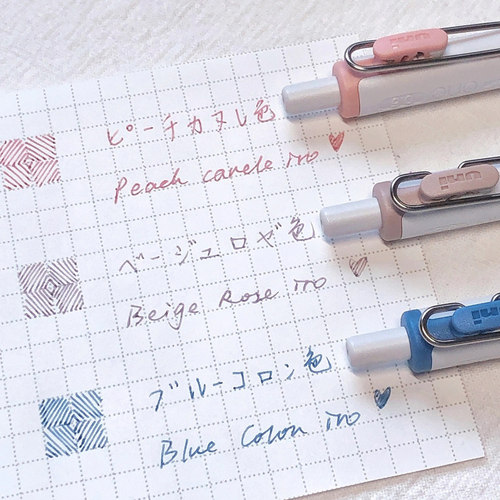 ピーチカヌレ色
Peach canele iro
ベージュロゼ色
Beige Rose iro
ブルーコロン色
Blue Colon iro
uni
uni
uni